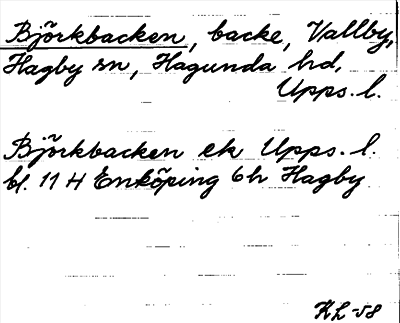 Björkbacken, backe, Vallby,
Hagby sn, Hagunda hd,
Upps. l.
Björkbacken ek Upps. l.
bl. 11 H Enköping 6h Hagby
KL -58